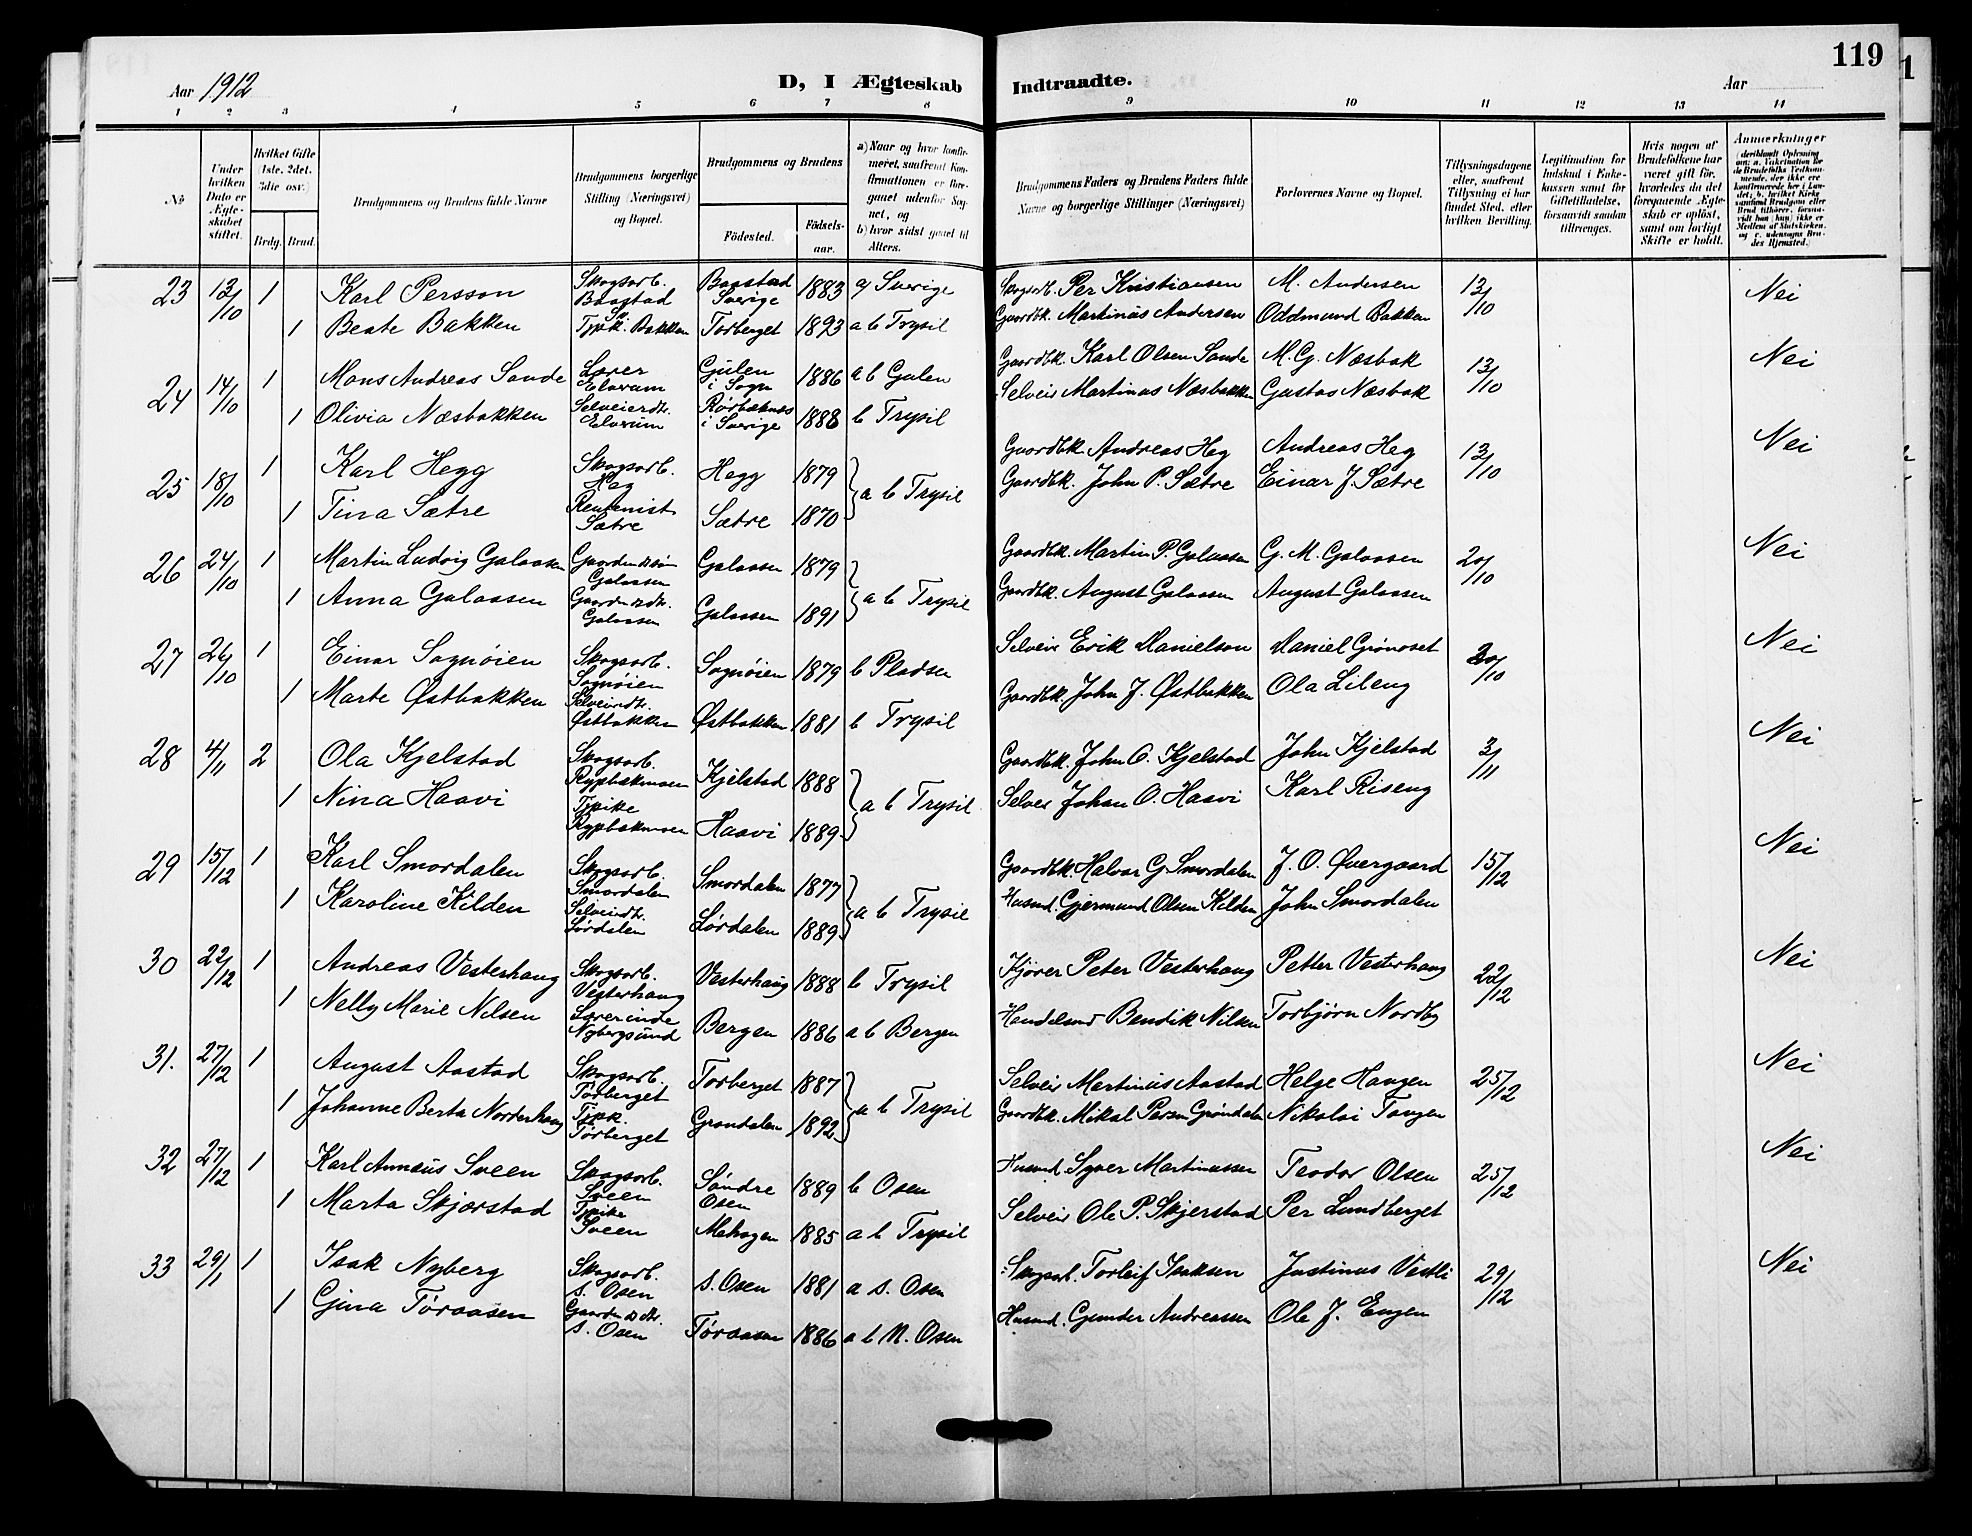 119
Aar 1912 D, I Ægteskab Indtraadte. Aar
1 2 3 4 5 6 7 8 9 10 11 12 13 14
No
Under hvilken Dato er Ægteskabet stiftet.
Hvilket Gifte (1ste, 2det, 3die osv.)
Brdg. Brud.
Brudgommens og Brudens fulde Navne
Brudgommens borgerlige Stilling (Næringsvei) og Bopæl.
Brudgommens og Brudens
Fødested. Fødselsaar.
a) Naar og hvor konfirmeret, saafremt Konfirmationen er foregaaet udenfor Sognet, og
b) hvor sidst gaaet til Alters.
Brudgommens Faders og Brudens Faders fulde Navne og borgerlige Stillinger (Næringsvei)
Forlovernes Navne og Bopæl.
Tillysningsdagene eller, saafremt Tillysning ei har fundet Sted, efter hvilken Bevilling.
Legitimation for Indskud i Enkekassen samt for Giftetilladelse, forsaavidt saadan tiltrænges.
Hvis nogen af Brudefolkene har været gift før, hvorledes da det foregaaende Ægteskab er opløst, samt om lovligt Skifte er holdt.
Anmerkninger
23 13/10 1 Karl Persson Skogsarb. Baastad Sv. Baastad Sverige 1883 a Sverige Skogsarb. Per Kristiansen M. Andersen 13/10 Nei
1 Beate Bakken Typik. Bakken Torberget 1893 a b Trysil Gaardbk. Martinus Andersen Oddmund Bakken
24 14/10 1 Mons Andreas Sande Lærer Elverum Gulen i Sogn 1886 a b Gulen Gaardbk. Karl Olsen Sande M. G. Næsbak 13/10 Nei
1 Olivia Næsbakken Selveierdtr. Elverum Rörbæknæs i Sverige 1888 b Trysil Selveir Martinus Næsbakken Gustav Næsbak
25 18/10 1 Karl Hegg Skogsarb. Heg Hegg 1879 a b Trysil Gaardbk Andreas Heg Andreas Heg 13/10 Nei
1 Tina Sætre Rentenist Sætre Sætre 1870 Gaardbk. John P. Sætre Einar J. Sætre
26 24/10 1 Martin Ludvig Galaasen Gaardmdssøn Galaasen Galaasen 1879 a b Trysil Gaardbk. Martin P. Galaasen G. M. Galaasen 20/10 Nei
1 Anna Galaasen Gaardmdsdtr. Galaasen Galaasen 1891 Gaardbk. August Galaasen August Galaasen
27 26/10 1 Einar Sognöien Skogsarb. Sognöien Sognöien 1879 b Pladsen Selveir Erik Danielson Daniel Grönoset 20/10 Nei
1 Marte Østbakken Selveirdtr. Østbakken Østbakken 1881 b Trysil Gaardbk. John J. Østbakken Ola Lileng
28 4/11 2 Ola Kjelstad Skogsarb. Rypbækmoen Kjelstad 1888 a b Trysil Gaardbk. John O. Kjelstad John Kjelstad 3/11 Nei
1 Nina Haavi Tpike Rypbækmoen Haavi 1889 Selvei Johan O. Haavi Karl Riseng
29 15/12 1 Karl Smordalen Skogsarb. Smordalen Smordalen 1877 a b Trysil Gaardbk. Halvor G. Smordalen J. O. Øvergaard 15/12 Nei
1 Karoline Kilden Selveirdtr. Lørdalen Lørdalen 1889 Husmd. Gjermund Olsen Kilden John Smordalen
30 22/12 1 Andreas Vesterhaug Skogsarb. Vesterhaug Vesterhaug 1888 b Trysil Kjører Peter Vesterhaug Petter Vesterhaug 22/12 Nei
1 Nelly Marie Nilsen Lærerinde Nybergsund Bergen 1886 a b Bergen Handelsmd Bendik Nilsen Torbjørn Nordby
31. 27/12 1 August Aastad Skogsarb. Törberget Torberget 1887 a b Trysil Selveir Martinus Aastad Helge Haugen 25/12 Nei
1 Johanne Berta Norderhaug Tpk. Törberget Gröndalen 1892 Gaardbk. Mikal Persen Gröndalen Nikolai Tangen
32 27/12 1 Karl Annæus Sveen Skogsarb. Sveen Söndre Osen 1889 b Osen Husmd. Syver Martinussen Teodor Olsen 25/12 Nei
1 Marta Skjærstad Tpike Sveen 1885 a b Trysil Selveir Ole P. Skjerstad Per Lundberget
33 29/1 1 Isak Nyberg Skogsarb. S. Osen S. Osen 1881 a S. Osen Skogsarb. Torleif Isaksen Justinus Vestli 29/12 Nei
1 Gina Töraasen Gaardmdsdtr. S. Osen Töraasen 1886 a b N. Osen Husmd. Gunder Andreassen Ole J. Engen